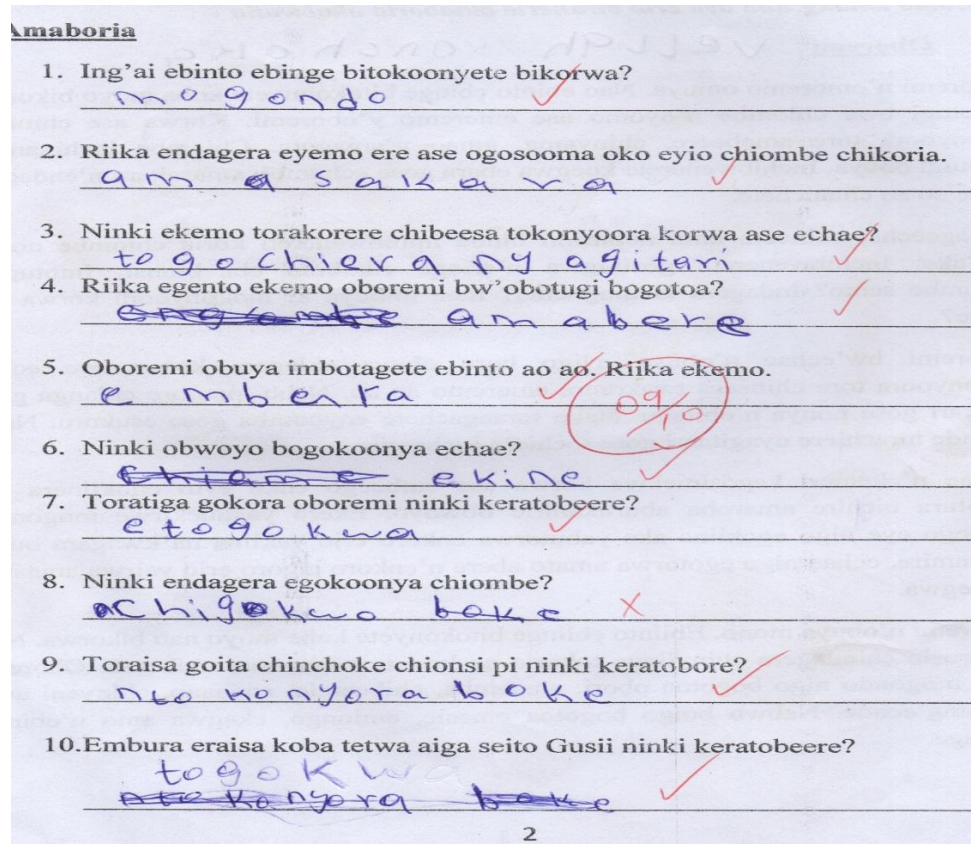 Amaboria
1. Ing'ai ebinto ebinge bitokoonyete bikorwa?
mogondo
2. Riika endagera eyemo ere ase ogosooma oko eyio chiombe chikoria.
amasakara
3. Ninki ekemo torakorere chibeesa tokonyoora korwa ase echae?
togochiera nyagitari
4. Riika egento ekemo oboremi bw'obotugi bogotoa?
amabere
5. Oboremi obuya imbotagete ebinto ao ao. Riika ekemo.
embenta
09/10
6. Ninki obwoyo bogokoonya echae?
ekine
7. Toratiga gokora oboremi ninki keratobeere?
etogokwa
8. Ninki endagera egokoonya chiombe?
boke
9. Toraisa goita chinchoke chionsi pi ninki keratobore?
ntokanyora boke
10.Embura eraisa koba tetwa aiga seito Gusii ninki keratobeere?
togokwa
2